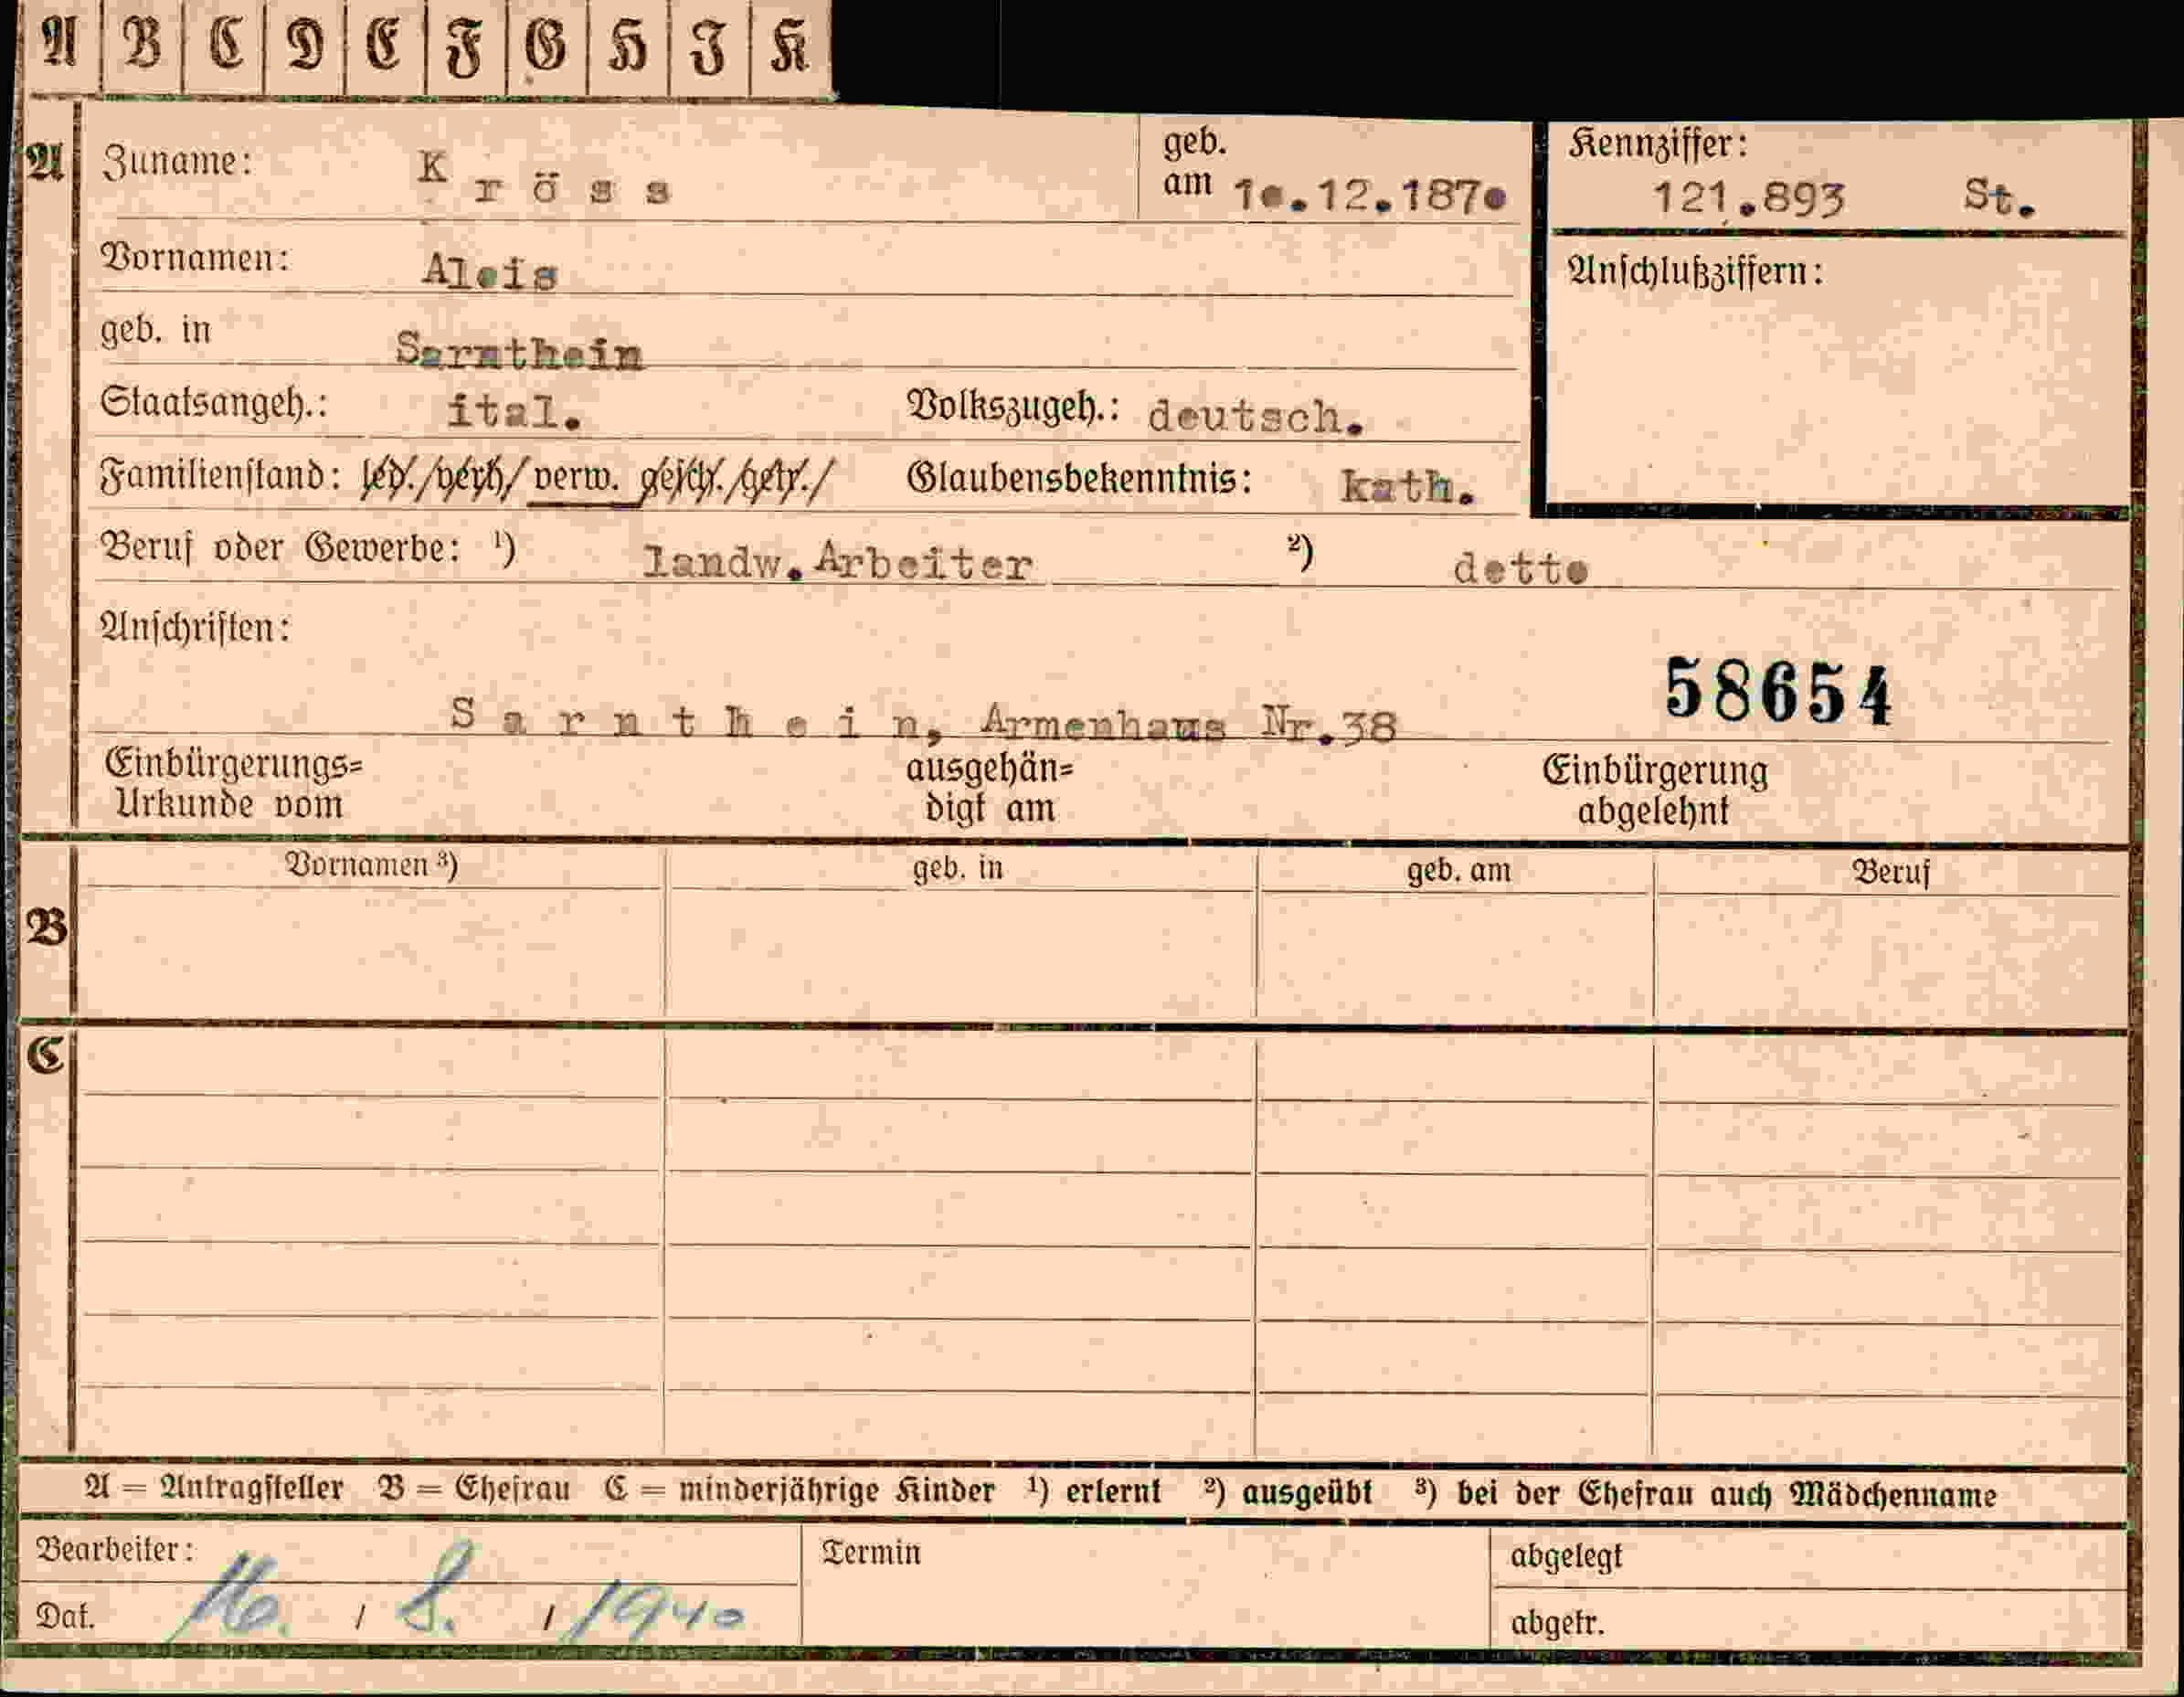 A B C D E F G H I K
A Zuname: Kröss geb. am 10.12.1870 Kennziffer: 121.893 St.
Vornamen: Alois Anschlußziffern:
geb. in Sarnthein
Staatsangeh.: ital. Volkszugeh.: deutsch.
Familienstand: led./verh/verw. gesch./getr./ Glaubensbekenntnis: kath.
Beruf oder Gewerbe: ¹) landw.Arbeiter ²) detto
Anschriften:
58654
Sarnthein, Armenhaus Nr.38
Einbürgerungs= ausgehän= Einbürgerung
Urkunde vom digt am abgelehnt
Vornamen ³) geb. in geb. am Beruf
B
C
A = Antragsteller B = Ehefrau C = minderjährige Kinder ¹) erlernt ²) ausgeübt ³) bei der Ehefrau auch Mädchenname
Bearbeiter: Termin abgelegt
Dat. 16. / 8. / 1940 abgetr.